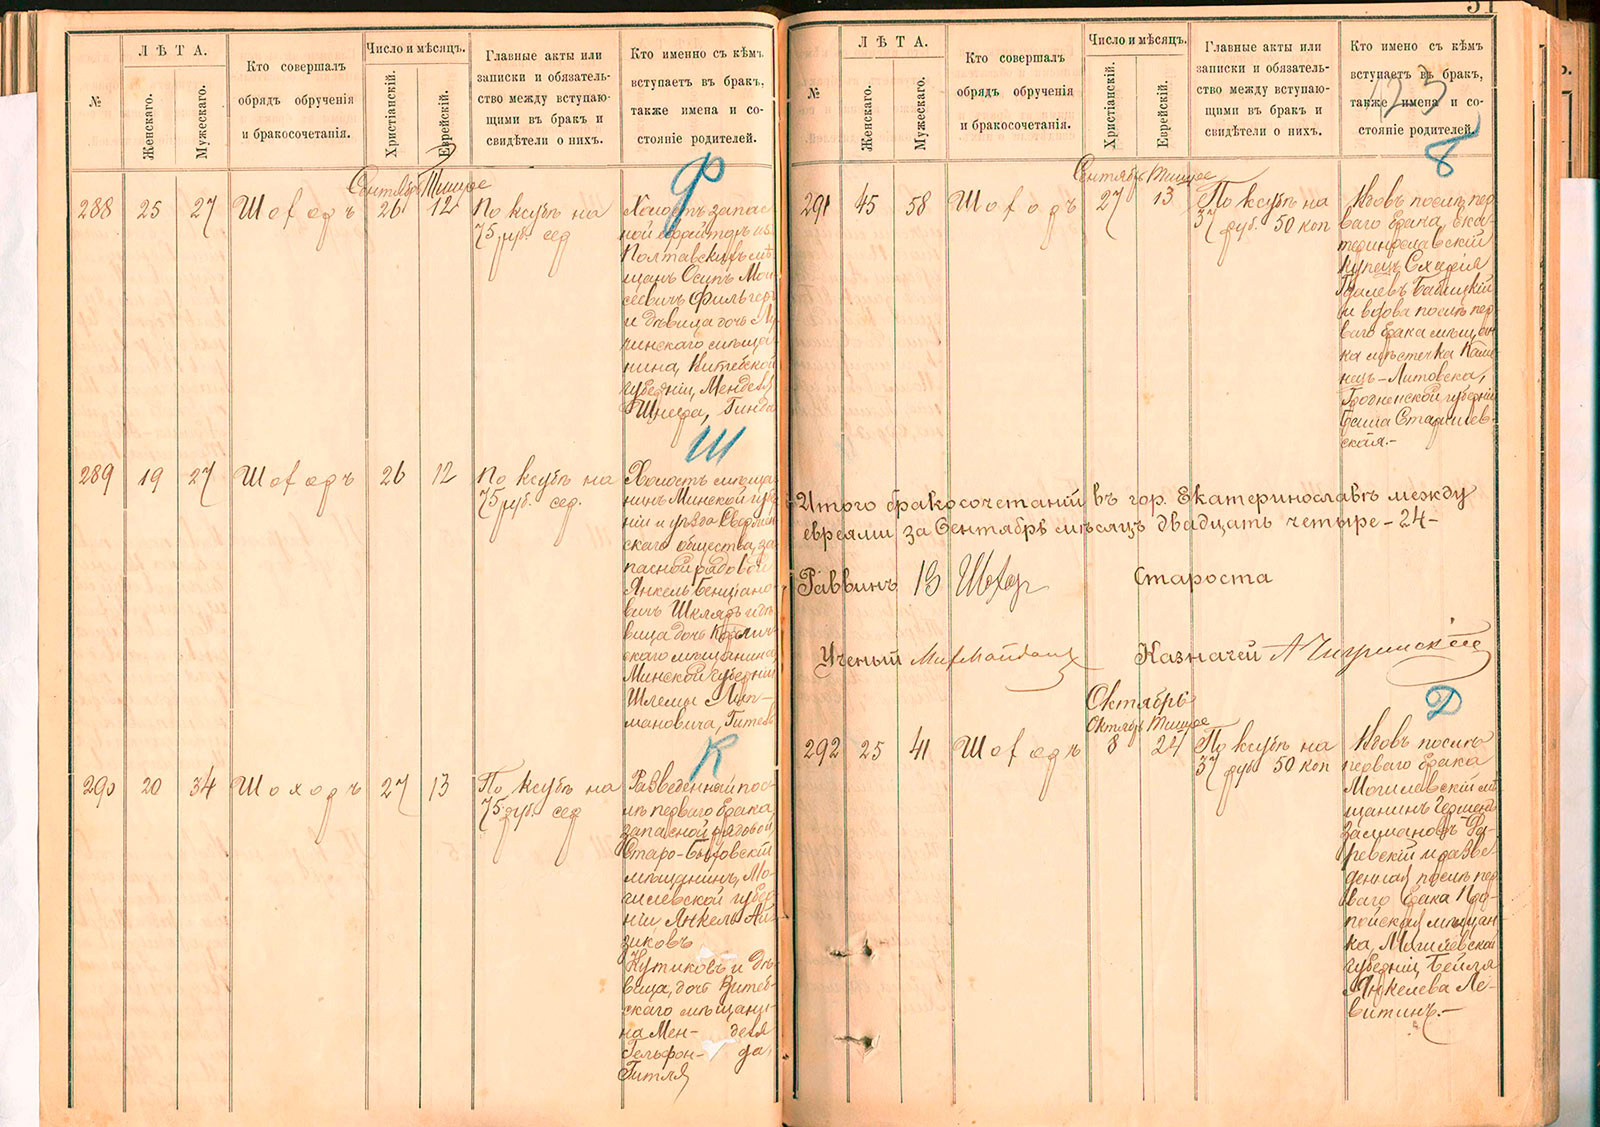 51
№
ЛѢТА.
Женскаго.
Мужескаго.
Кто совершалъ
обрядъ обрученія
и бракосочетанія.
Число и мѣсяцъ.
Христіанскій.
Еврейскій.
Главные акты или
записки и обязатель-
ство между вступаю-
щими въ бракъ и
свидѣтели о нихъ.
Кто именно съ кѣмъ
вступаетъ въ бракъ,
также имена и со-
стояніе родителей.
Ф
Сентябрь Тишрѣ
288 25 27 Шохоръ 26 12
По ксубѣ на
75 руб. сер
Холостъ запас
ной ефрейторъ изъ
Полтавскихъ мѣ
щанъ Осипъ Мои
сеевичъ Фильгеръ
и дѣвица дочь Лу
чинскаго мѣща
нина, Витебской
губерніи, Менделя
Шнера, Гинда
Ш
289 19 27 Шохоръ 26 12
По ксубѣ на
75 руб. сер.
Холостъ мѣща
нинъ Минской губер
ніи и уѣзда
скаго общества, за
пасной рядовой
Янкель Бенціано
вичъ Шкляръ и дѣ
вица дочь
скаго мѣщанина,
Минской губерніи
Шлемы Лип-
мановича, Гитель
К
290 20 34 Шохоръ 27 13
По ксубѣ на
75 руб. сер
Разведенный пос-
лѣ перваго брака,
запасной рядовой
Старо-Быховскій
мѣщанинъ, Мо-
гилевской губер
ніи, Янкель Ай
зиковъ
Кутиковъ и дѣ-
вица, дочь Витеб-
скаго мѣщани-
на Мен- деля
Гельфон- да,
Гитля
№
ЛѢТА.
Женскаго.
Мужескаго.
Кто совершалъ
обрядъ обрученія
и бракосочетанія.
Число и мѣсяцъ.
Христіанскій.
Еврейскій.
Главные акты или
записки и обязатель-
ство между вступаю-
щими въ бракъ и
свидѣтели о нихъ.
Кто имено съ кѣмъ
вступаетъ въ бракъ,
также имена и со-
стояніе родителей.
123
Б
Сентябрь Тишрѣ
291 45 58 Шохоръ 27 13
По ксубѣ на
37 руб. 50 коп
Вдовъ послѣ пер
ваго брака, Ека-
теринославскій
купецъ Схарія
Гдалевъ Бабицкій
и вдова послѣ пер
ваго брака мѣщан
ка мѣстечка Каме
нецъ-Литовска,
Гродненской губерніи
Баша
ская.-
Итого бракосочетаній въ гор. Екатеринославѣ между
евреями за Сентябрь мѣсяцъ двадцать четыре - 24 -
Раввинъ В Шохоръ Староста
Ученый Казначей А Чигринскій
Октябрь
Октябрь Тишрѣ
Д
292 25 41 Шохоръ 8 24
По ксубѣ на
37 руб 50 коп
Вдовъ послѣ
перваго брака
Могилевскій мѣ
щанинъ
Залмановъ
ревскій и разве-
денная послѣ пер
ваго брака Про-
пойская мѣщан-
ка, Могилевской
губерніи, Бейля
Янкелева Ле-
витинъ.-